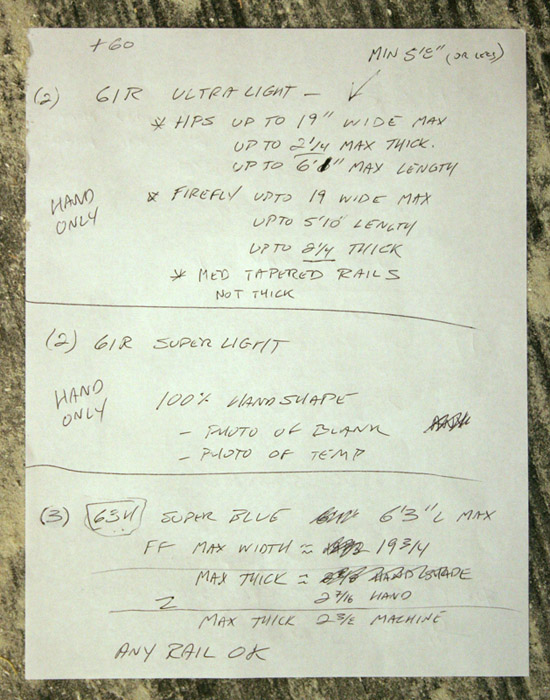 +60
MIN 5'8" (OR LESS)
(2) 61R ULTRALIGHT -
* HPS UP TO 19" WIDE MAX
UP TO 2 1/4 MAX THICK.
UP TO 6' MAX LENGTH
HAND ONLY
* FIREFLY UPTO 19 WIDE MAX
UPTO 5'10 LENGTH
UPTO 2 1/4 THICK
* MED TAPERED RAILS
NOT THICK
(2) 61R SUPERLIGHT
HAND ONLY
100% HANDSHAPE
- PHOTO OF BLANK
- PHOTO OF TEMP
(3) SUPER BLUE 6'3" L MAX
FF MAX WIDTH ≈ 19 3/4
MAX THICK ≈
2 7/16 HAND
MAX THICK MACHINE
ANY RAIL OK